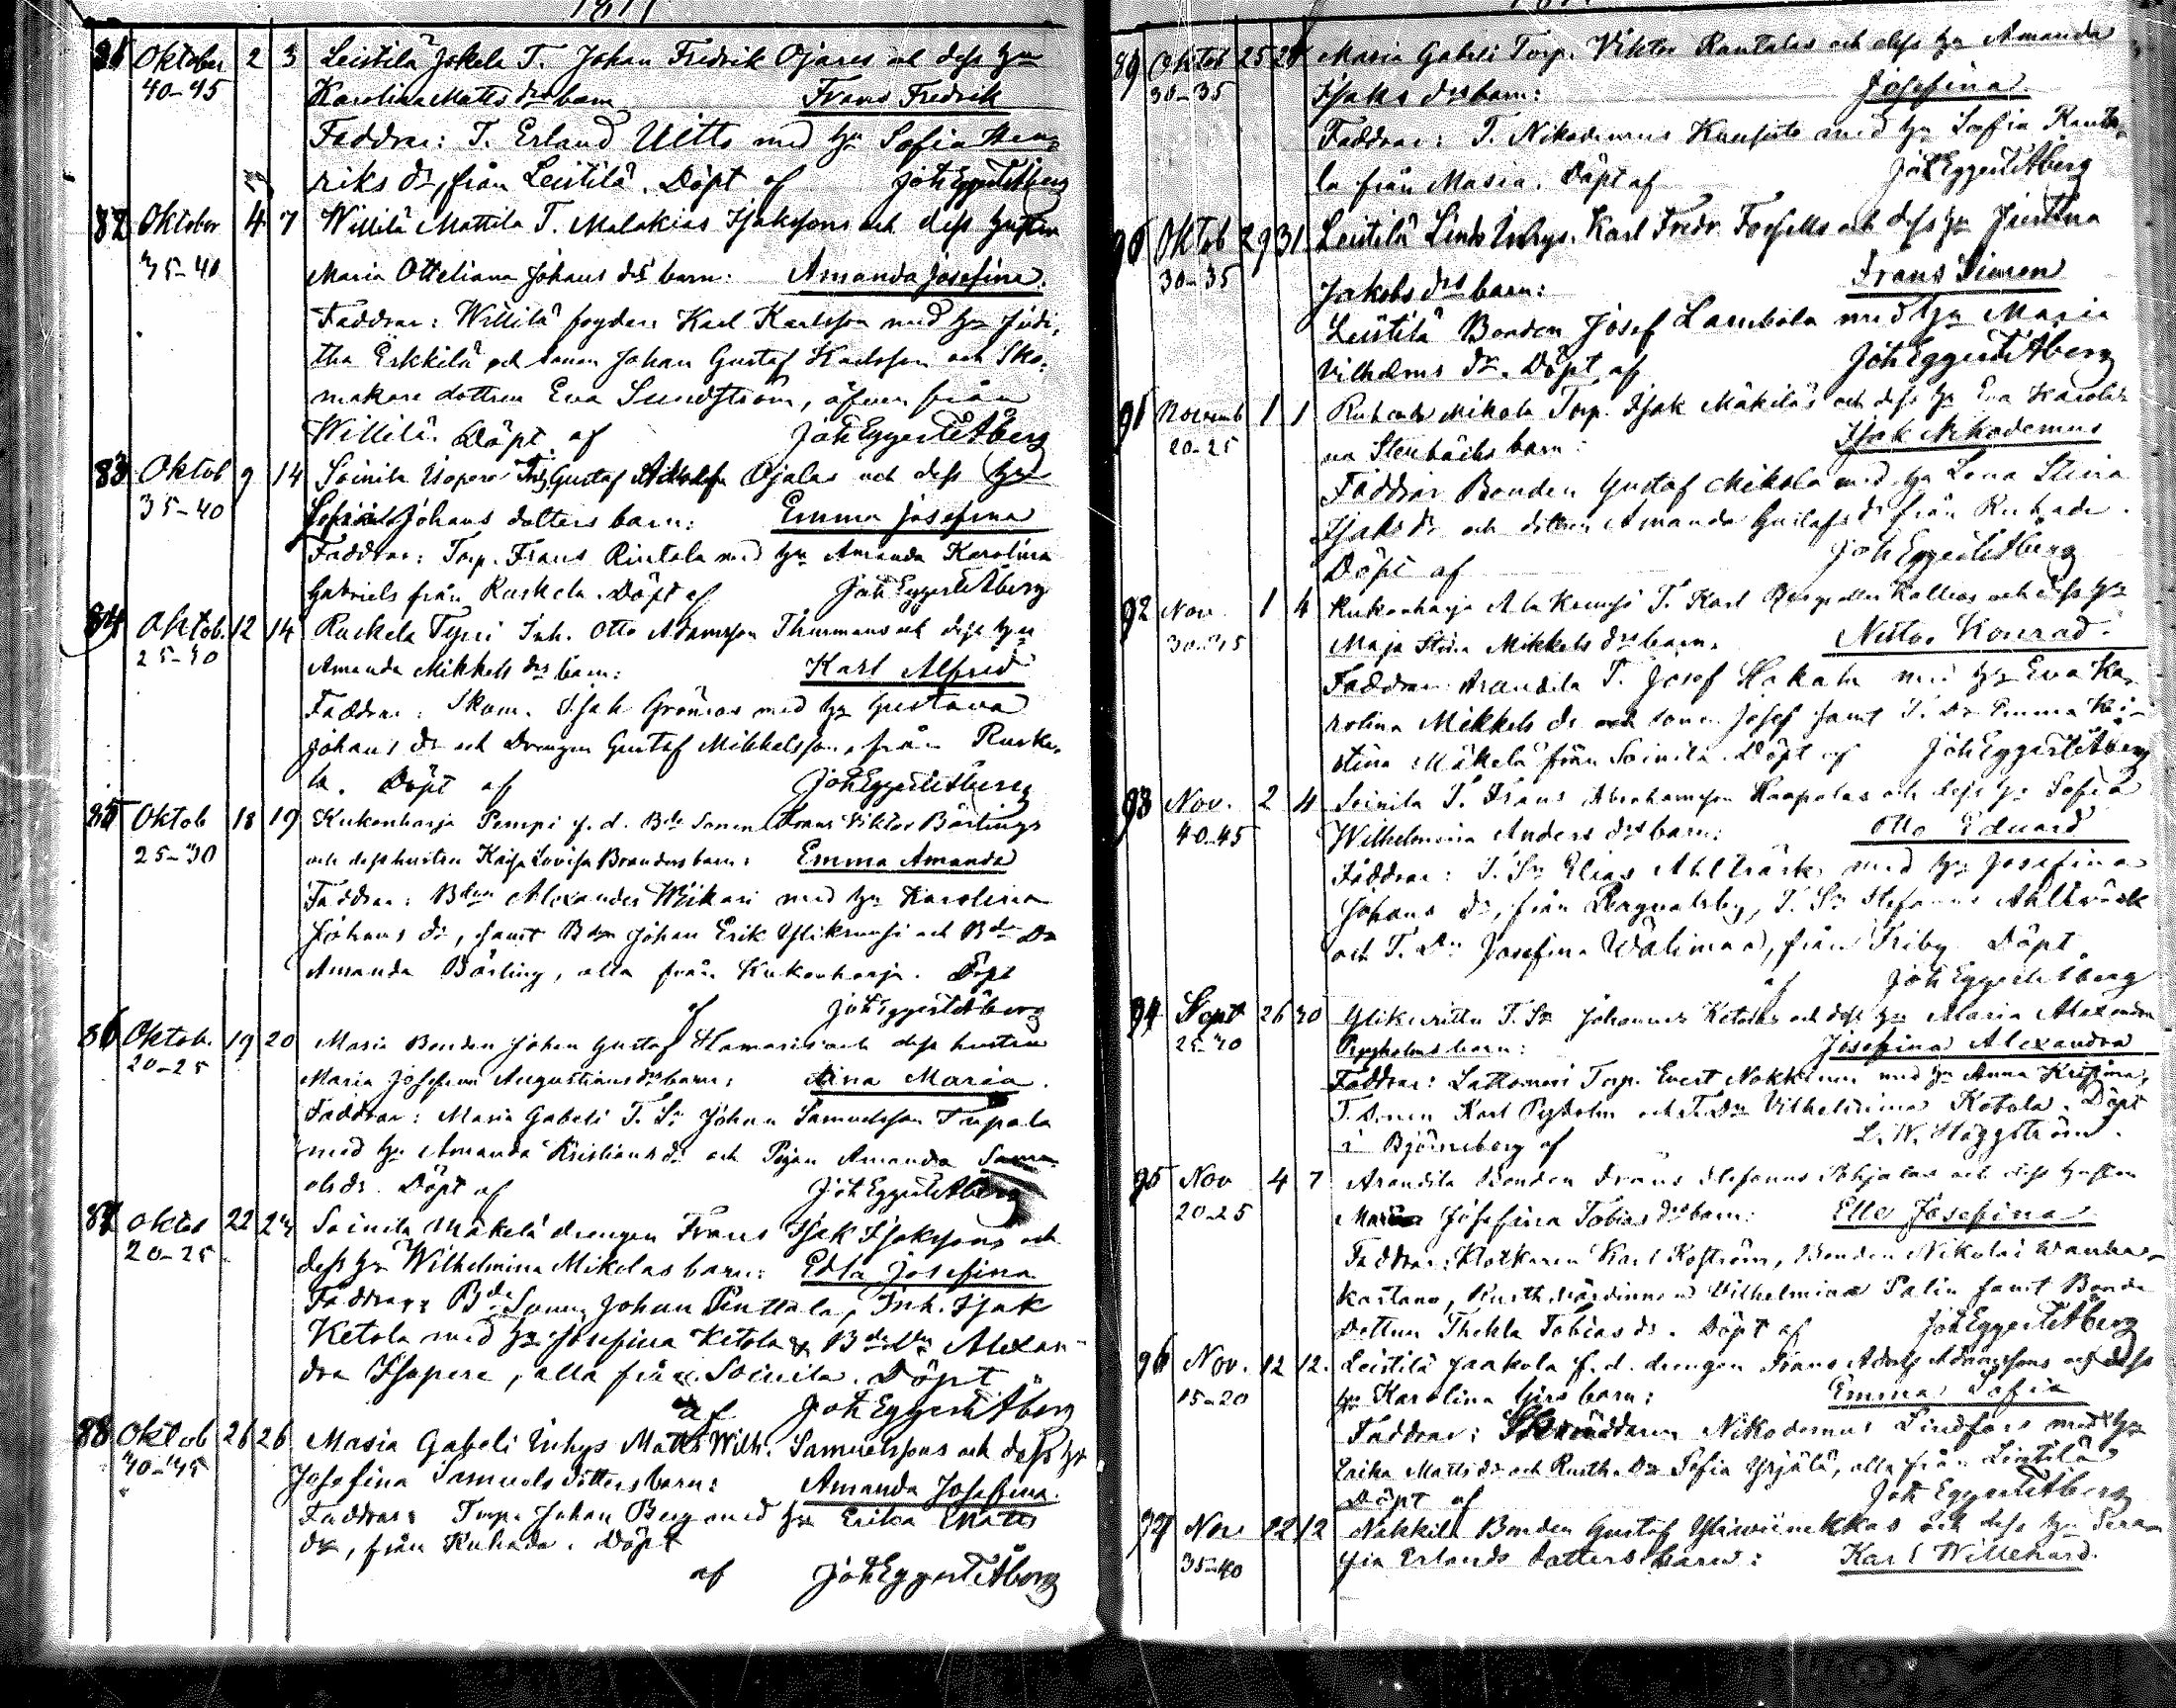 81 Oktober 2 3 Leistilä Jokela T. Johan Fredrik Ojares och dess hu
40-45 Karolina Matts drs barn Frans Fredrik
Faddrar: T. Erland Uitto med hu Sofia Hen-
riks dr, från Leistilä. Döpt af Joh Eggert Åberg
82 Oktober 4 7 Willilä Mattila T. Malakias Isakssons och dess hustru
35-40 Maria Otteliana Johans drs barn: Amanda Josefina.
Faddrar: Willilä fogden Karl Karlsson med hu Judi-
tha Erkkilä och sonen Johan Gustaf Karlsson och Sko-
makare dottren Eva Sundström, äfven från
Willilä. Döpt af Joh Eggert Åberg
83 Oktob 9 14 Soinila Isopere Inh. Gustaf Adolf Ojalas och dess hu
35-40 Johans dotters barn: Emma Josefina
Faddrar: Torp. Frans Rintala med hu Amanda Karolina
Gabriels från Ruskela. Döpt af Joh Eggert Åberg
84 Oktob. 12 14 Ruskela Tyni Inh. Otto Adamsson Thurmans och dess hu
25-30 Amanda Mikkels drs barn: Karl Alfred
Faddrar: Skom. Isak Grönroos med hu Gustava
Johans dr och Drengen Gustaf Mikkelsson, från Ruske-
la. Döpt af Joh Eggert Åberg
85 Oktob 18 19 Kukonharja Pempi f. d. Bde Sonen Frans Viktor Bärlings
25-30 och dess hustru Kaisa Lovisa Brandus barn: Emma Amanda
Faddrar: Bden Alexander Weikari med hu Karolina
Johans dr, samt Bden Johan Erik Ylikrunsi och Bde Dr
Amanda Bärling, alla från Kukonharja. Döpt
af Joh Eggert Åberg
86 Oktob. 19 20 Masia Bonden Johan Gustaf Hamaris och dess hustru
20-25 Maria Josefina Augustinus drs barn: Aina Maria.
Faddrar: Masia Gabeli T. Sn Johan Samuelsson Tupala
med hu Amanda Kristians dr och Pigan Amanda Samu-
els dr. Döpt af Joh Eggert Åberg
87 Oktob 22 23 Soinila Mäkelä drengen Frans Isak Isakssons och
20-25 dess hu Wilhelmina Mikolas barn: Edla Josefina
Faddrar: Bde Sonen Johan Penttala, Inh. Isak
Ketola med hu Josefina Ketola & Bde Dr Alexan-
dra Isopere, alla från Soinila. Döpt
af Joh Eggert Åberg
88 Oktob 26 26 Masia Gabeli Inhys Matts Wilh. Samuelssons och dess hu
30-35 Josefina Samuels dotters barn: Amanda Josefina.
Faddrar: Torp. Johan Berg med hu Erika Matts
dr, från Ruhade. Döpt
af Joh Eggert Åberg
89 Oktob 25 28 Masia Gabeli Torp. Viktor Rantalas och dess hu Amanda
30-35 Isaks drs barn: Josefina.
Faddrar: T. Nikodemus med hu Sofia Ranta-
la från Masia. Döpt af Joh Eggert Åberg
90 Oktob 29 31 Leistilä Linds Inhys. Karl Fredr. Forsells och dess hu Justina
30-35 Jakobs drs barn: Frans Simon
Leistilä Bonden Josef Lambola med hu Maria
Vilhelms dr. Döpt af Joh Eggert Åberg
91 Novemb 1 1 Ruhade Mikola Torp. Isak Mäkiläs och dess hu Eva Karoli-
20-25 na Stenbäcks barn: Isak Nikodemus
Faddrar Bonden Gustaf Mikola med hu Lena Stina
Isaks dr och dottren Amanda Gustafs dr från Ruhade.
Döpt af Joh Eggert Åberg
92 Nov. 1 4 Kukonharja Ala Krunsi T. Karl Kallios och dess hu
30-35 Maja Stina Mikkels drs barn. Nestor Konrad.
Faddrar Arandila T. Josef Hakala med hu Eva Ka-
rolina Mikkels dr och sonen Josef samt T. Dr Emma Kri-
stina Mäkelä från Soinila. Döpt af Joh Eggert Åberg
93 Nov. 2 4 Soinila T. Frans Abrahamsson Haapalas och dess hu Sofia
40-45 Wilhelmina Anders drs barn: Otto Eduard
Faddrar: T. Sn Elias Ahlträsk med hu Josefina
Johans dr, från Ragnalsby, T. Sn Stefanus Ahlträsk
och T. Dr Josefina Wälimaa, från Friby Döpt
af Joh Eggert Åberg
94 Sept 26 30 Ylikurittu T. Sn Johannes Ketolas och dess hu Maria Alexandra
25-30 barn: Josefina Alexandra
Faddrar: Lattomeri Torp. Evert Nokkinen med hu Anna Kristina,
T. Sonen Karl och T. Dr Vilhelmina Ketola. Döpt
i Björneborg af L. W. Häggström.
95 Nov 4 7 Arandila Bonden Frans Stefanus Pohjalas och dess hustru
20-25 Maria Josefina Tobias drs barn: Elle Josefina
Faddrar: Klockaren Karl Koström, Bonden Nikolai Wanha-
kartano, Rusth. värdinnan Vilhelmina Palin samt Bonde
Dottren Thekla Tobias dr. Döpt af Joh Eggert Åberg
96 Nov. 12 12. Leistilä Jaakola f. d. drengen Frans Adolf Adamssons och dess
15-20 hu Karolina Girs barn: Emma Sofia
Faddrar: Skräddaren Nikodemus Lindfors med hu
Erika Matts dr och Rusth. Dr Sofia Yrjälä, alla från Leistilä
Döpt af Joh Eggert Åberg
97 Nov 12 12 Nakkila Bonden Gustaf Yliwiinikkas och dess hu Sera-
35-40 fia Erlands dotters barn: Karl Willehard.